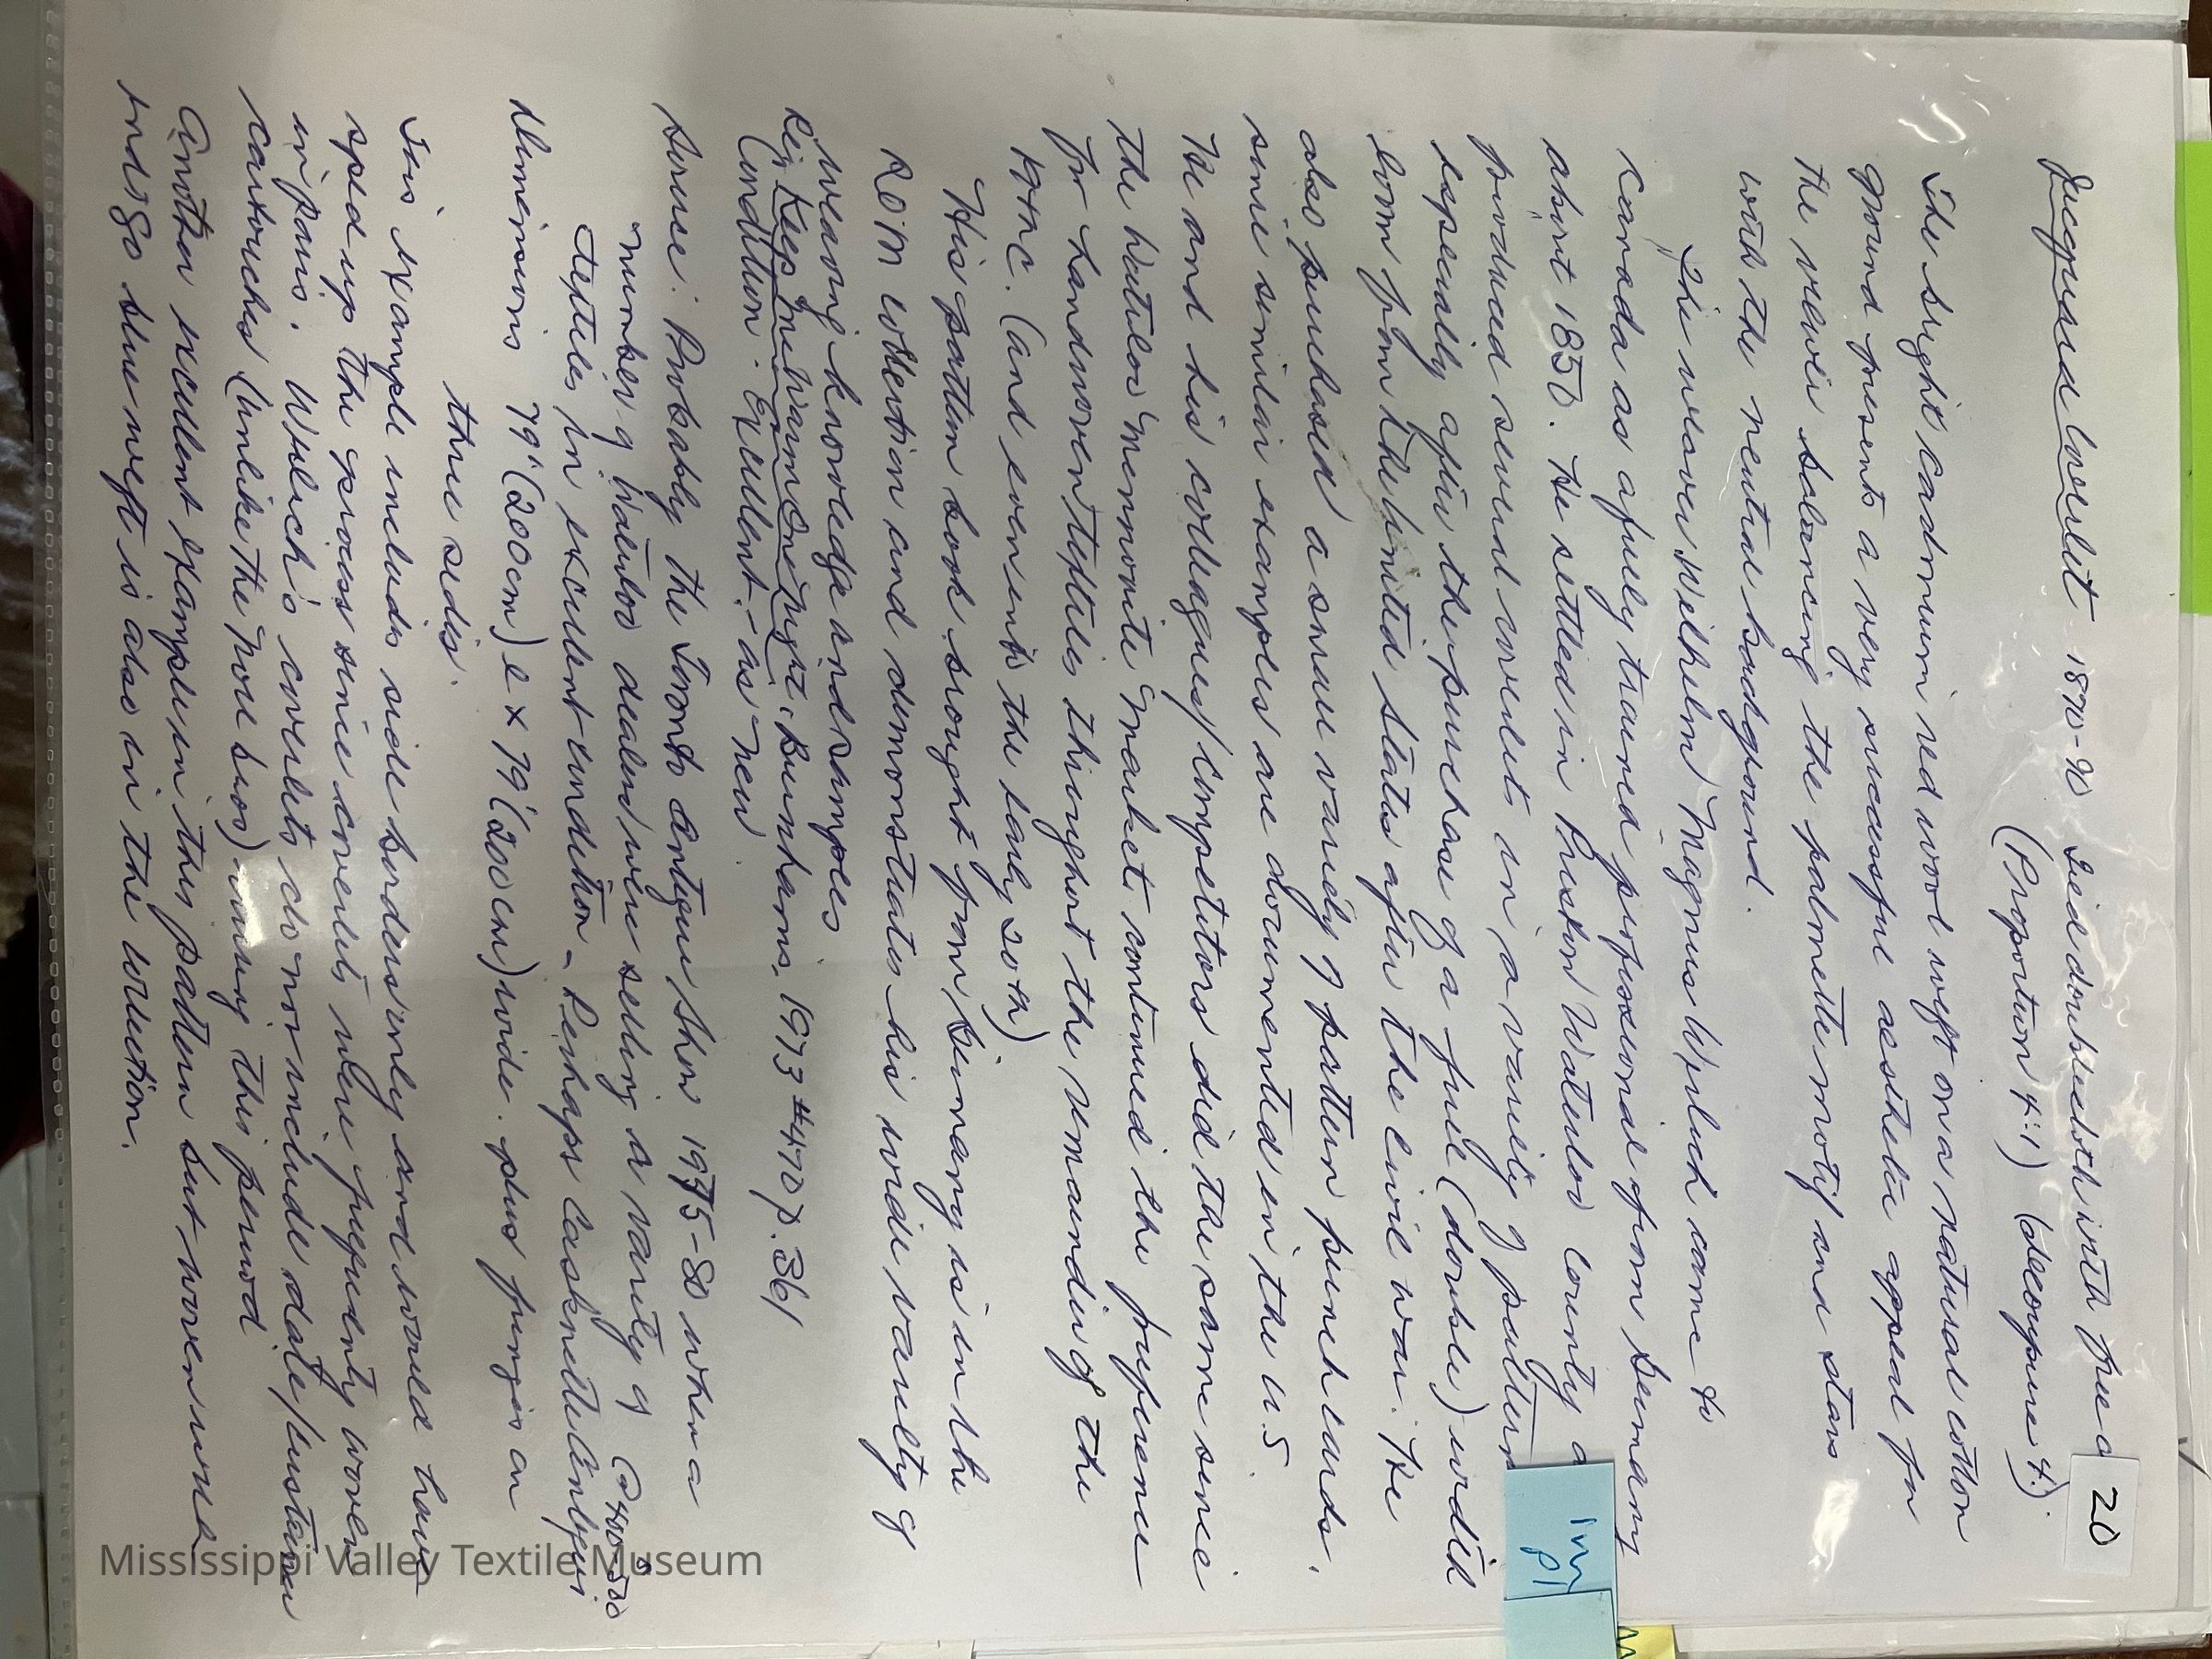 Jacquard Coverlet 1870-90 Tied doublecloth with free
20
(Proportion 4:1) (decoupure 4.)
The bright cadmium red wool weft on a natural cotton
ground presents a very successful aesthetic appeal for
the viewer balancing the palmette motif and stars
with the neutral background.
The weaver Wilhelm Magnus Werlich came to
Canada as a fully trained professional from Germany
about 1850. He settled in Preston Waterloo County a
produced several coverlets in a variety of pattern
especially after the purchase of a fuie (double) width
loom from the United States after the Civil War. He
also purchased a small variety of pattern punch cards.
some similar examples are documented in the U.S.
He and his colleagues/competitors did the same since
the Waterloo "Mennonite" market continued the preference
for handwoven textiles throughout the remainder of the
19th C. (and even into the early 20th)
His pattern book brought from Germany is in the
ROM collection and demonstrates his wide variety of
weaving knowledge and samples
Ref: Keep Me Warm One Night, Burnhams. 1973 #470 p.361
Condition: Excellent - as new
Source: Probably the Toronto Antique Show 1975-80 when a
number of Waterloo dealers were selling a variety of @400-500
textiles in excellent condition - Perhaps Casknette Antiques
Dimensions 79" (200cm) l x 79" (200cm) wide. plus fringes on
three sides.
This example includes side borders only and would have
sped up the process since coverlets were frequently woven
in pairs. Wilich's coverlets do not include date/customer
cartouches (unlike the Noll bros) during this period
Another excellent example in this pattern but woven in
indigo blue weft is also in the collection.
inv
p1
Mississippi Valley Textile Museum